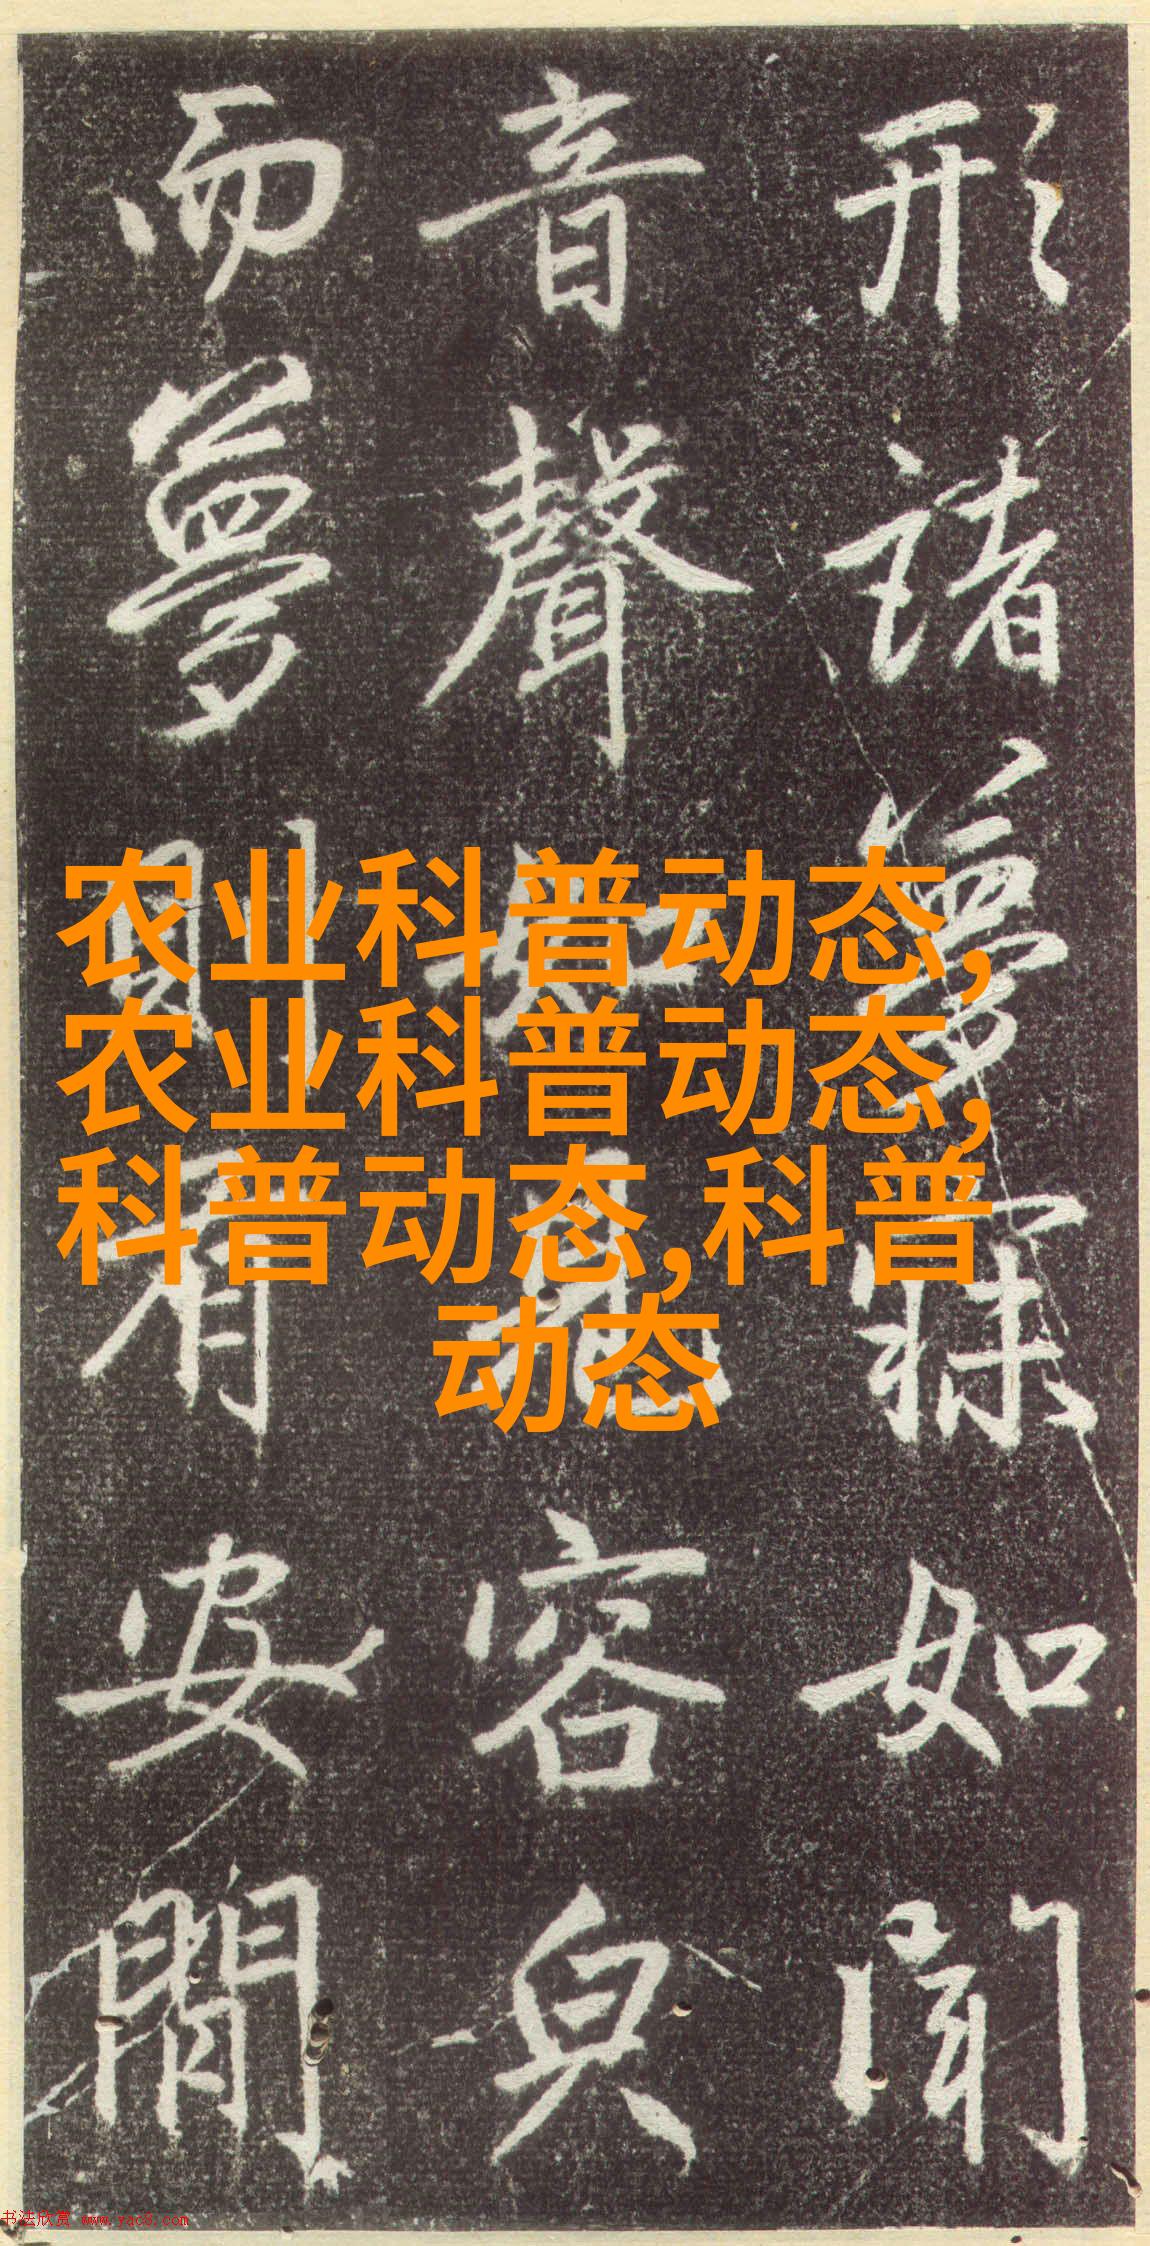 形諸夢寐如聞
音聲如見容皃
而夢則安閒
农业科普动态,
农业科普动态,
科普动态,科普
动态
书法欣赏 www.yac8.com